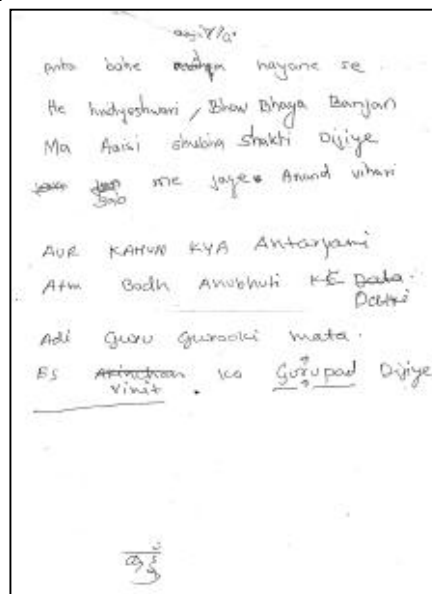 bahe nayane se
He hridyeshwari, Bhaw Bhaya Banjan
Ma Aaisi shubhra shakti Dijiye
me jage Anand vihari
AUR KAHUN KYA Antaryami
Atm Bodh Anubhuti KE Data
Datri
Adi Guru Guruoki mata.
ES Akinchan ko Gurupad Dijiye
vinit.